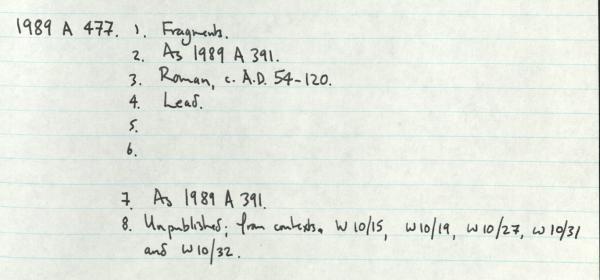 1989 A 477. 1. Fragments.
2. As 1989 A 391.
3. Roman, c. A.D. 54-120.
4. Lead.
5.
6.
7. As 1989 A 391.
8. Unpublished; from contexts. W10/15, W10/19, W10/27, W10/31
and W10/32.